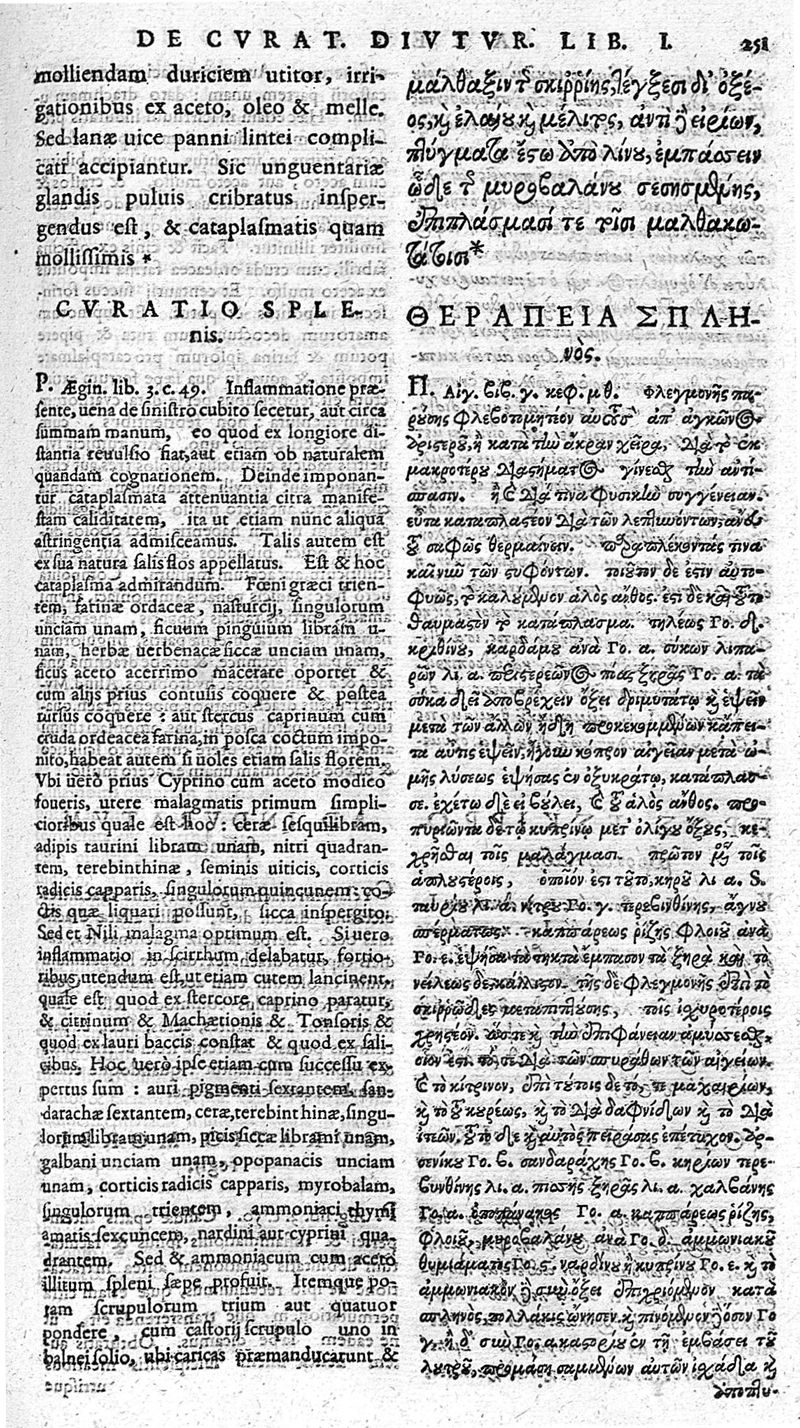 DE CVRAT. DIVTVR. LIB. I. 251
molliendam duriciem utitor, irri-
gationibus ex aceto, oleo & melle.
Sed lanæ uice panni lintei compli-
cati accipiantur. Sic unguentariæ
glandis puluis cribratus insper-
gendus est, & cataplasmatis quam
mollissimis *
CVRATIO SPLE-
nis.
P. Ægin. lib. 3. c. 49. Inflammatione præ-
sente, uena de sinistro cubito secetur, aut circa
summam manum, eo quod ex longiore di-
stantia reuulsio fiat, aut etiam ob naturalem
quandam cognationem. Deinde imponan-
tur cataplasmata attenuantia citra manife-
stam caliditatem, ita ut etiam nunc aliqua
astringentia admisceamus. Talis autem est
ex sua natura salis flos appellatus. Est & hoc
cataplasma admirandum. Fœni græci trien-
tem, farinæ ordaceæ, nasturcij, singulorum
unciam unam, ficuum pinguium libram u-
nam, herbæ uerbenacæ siccæ unciam unam,
ficus aceto acerrimo macerare oportet &
cum alijs prius contusis coquere & postea
rursus coquere: aut stercus caprinum cum
cruda ordeacea farina, in posca coctum impo-
nito, habeat autem si uoles etiam salis florem.
Vbi uero prius Cyptino cum aceto modico
foueris, utere malagmatis primum simpli-
cioribus quale est hoc: ceræ sesquilibram,
adipis taurini libram unam, nitri quadran-
tem, terebinthinæ, seminis uiticis, corticis
radicis capparis, singulorum quincuncem: co-
ctis quæ liquari possunt, sicca inspergito.
Sed et Nili malagma optimum est. Si uero
inflammatio in scirrhum delabatur, fortio-
ribus utendum est, ut etiam cutem lancinent,
quale est quod ex stercore caprino paratur,
& citrinum & Machærionis & Tonsoris &
quod ex lauri baccis constat & quod ex sali-
cibus. Hoc uero ipse etiam cum successu ex-
pertus sum: auri pigmenti sextantem, san-
darachæ sextantem, ceræ, terebinthinæ, singu-
lorum libram unam, picis siccæ libram unam,
galbani unciam unam, opopanacis unciam
unam, corticis radicis capparis, myrobalam,
singulorum trientem, ammoniaci thymi
amatis sexcuncem, nardini aut cyprini qua-
drantem. Sed & ammoniacum cum aceto
illitum spleni sæpe profuit. Itemque po-
tam scrupulorum trium aut quatuor
pondere, cum castorij scrupulo uno in
balnei solio, ubi caricas præmanducarunt &
utrisque
μάλθαξιν τῆς σκιῤῥίης, τέγξεσι δι' ὀξέ-
ος, καὶ ἐλαίου καὶ μέλιτος, ἀντὶ δὲ εἰρίων,
πτύγματα ἔστω ἀπὸ λίνου, ἐμπάσσειν
ὧδε τῆς μυροβαλάνου σεσησμένης,
ἐπιπλάσμασί τε τοῖσι μαλθακω-
τάτοισι*
ΘΕΡΑΠΕΙΑ ΣΠΛΗ-
νός.
Π. Αἰγ. βιβ. γ. κεφ. μθ. Φλεγμονῆς πα-
ρούσης φλεβοτομητέον αὐτοὺς ἀπ' ἀγκῶνος
ἀριστεροῦ, ἢ κατὰ τὴν ἄκραν χεῖρα, διὰ τὸ ἐκ
μακροτέρου διαστήματος γίνεσθαι τὴν ἀντί-
σπασιν. ἢ καὶ διά τινα φυσικὴν συγγένειαν.
εἶτα καταπλαστέον διὰ τῶν λεπτυνόντων, ἄνευ
τοῦ σαφῶς θερμαίνειν. παραπλέκοντάς τινα
καὶ νῦν τῶν στυφόντων. τοιοῦτον δέ ἐστιν αὐτο-
φυῶς, τὸ καλούμενον ἁλὸς ἄνθος. ἔστι δὲ καὶ τοῦτο
θαυμαστὸν τὸ κατάπλασμα. τήλεως Γο. δ.
κριθίνου, καρδάμου ἀνὰ Γο. α. σύκων λιπα-
ρῶν λι. α. περιστερεῶνος πόας ξηρᾶς Γο. α. τὰ
σῦκα δεῖ ἀποβρέχειν ὄξει δριμυτάτῳ καὶ ἕψειν
μετὰ τῶν ἄλλων ἤδη προκεκομμένων κἄπει-
τα αὖτις ἕψειν, ἢ γοῦν κόπρον αἰγείαν μετὰ ὠ-
μῆς λύσεως ἑψήσας ἐν ὀξυκράτῳ, κατάπλασ-
σε. ἐχέτω δὲ εἰ βούλει, καὶ τοῦ ἁλὸς ἄνθος. προ-
πυριῶντα δὲ τῷ κυπρίνῳ μετ' ὀλίγου ὄξους, κε-
χρῆσθαι τοῖς μαλάγμασι. πρῶτον μὲν τοῖς
ἁπλουστέροις, ὁποῖον ἐστι τοῦτο, κηροῦ λι α. S.
ταυρίου λι. α. νίτρου Γο. γ. τερεβινθίνης, ἄγνου
σπέρματος. καππάρεως ῥίζης φλοιοῦ ἀνὰ
Γο. ε. ἑψήσας τὰ τηκτὰ ἔμπασσον τὰ ξηρὰ καὶ τὸ
νείλεως δὲ κάλλιστον. τῆς δὲ φλεγμονῆς ἐπὶ τὸ
σκιῤῥῶδες μεταπιπτούσης, τοῖς ἰσχυροτέροις
χρηστέον. ὥστε καὶ τὴν ἐπιφάνειαν ἀμύσσεσθαι,
οἷον ἐστι τό, τε διὰ τῶν σπυράθων τῶν αἰγείων.
καὶ τὸ κίτρινον, ἐπὶ τούτοις δὲ τό, τε μαχαιρίων,
καὶ τὸ τοῦ κουρέως, καὶ τὸ διὰ δαφνίδων καὶ τὸ διὰ
ἰτεῶν. τοῦτο δὲ καὶ αὐτὸς πειράσας ἐπέτυχον. ἀρ-
σενίκου Γο. β. σανδαράχης Γο. β. κηρίων τερε-
βινθίνης λι. α. πίσσης ξηρᾶς λι. α. χαλβάνης
Γο. α. ὀποπάνακος Γο. α. καππάρεως ῥίζης,
φλοιοῦ, μυροβαλάνου ἀνὰ Γο. δ. ἀμμωνιακοῦ
θυμιάματος Γο. ς. ναρδίνου ἢ κυπρίνου Γο. ε. καὶ τὸ
ἀμμωνιακὸν δὲ σὺν ὄξει ἐπιχριόμενον κατὰ
σπληνὸς, πολλάκις ὤνησεν. καὶ πινόμενον δὲ ὅσον Γο
γ. ἢ δ. σὺν Γο. α. καστορίου ἐν τῇ ἐμβάσει τοῦ
λουτροῦ, προμασησαμένων αὐτῶν ἰσχάδια καὶ
ἀποπτυ-